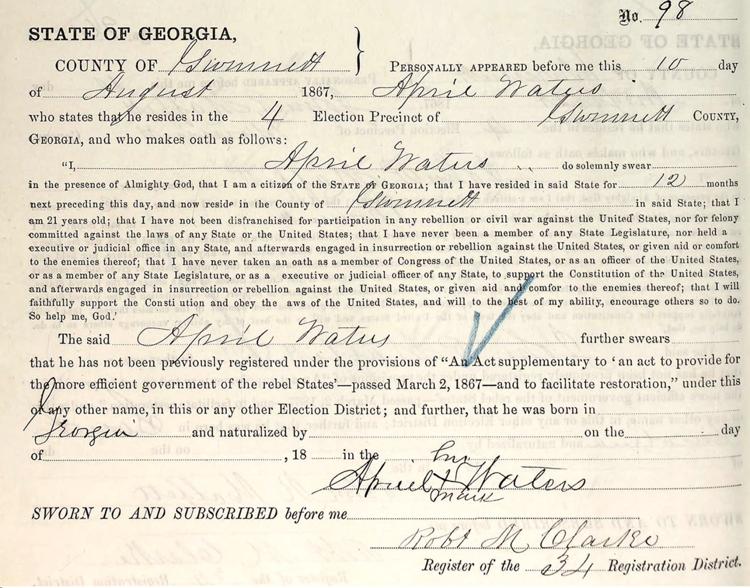 No. 98
STATE OF GEORGIA,
COUNTY OF Gwinnett } PERSONALLY APPEARED before me this 10 day
of August 1867, April Waters
who states that he resides in the 4 Election Precinct of Gwinnett COUNTY,
GEORGIA, and who makes oath as follows:
"I, April Waters do solemnly swear
in the presence of Almighty God, that I am a citizen of the STATE OF GEORGIA; that I have resided in said State for 12 months
next preceding this day, and now reside in the County of Gwinnett in said State; that I
am 21 years old; that I have not been disfranchised for participation in any rebellion or civil war against the United States, nor for felony
committed against the laws of any State or the United States; that I have never been a member of any State Legislature, nor held a
executive or judicial office in any State, and afterwards engaged in insurrection or rebellion against the United States, or given aid or comfort
to the enemies thereof; that I have never taken an oath as a member of Congress of the United States, or as an officer of the United States,
or as a member of any State Legislature, or as a executive or judicial officer of any State, to support the Constitution of the United States,
and afterwards engaged in insurrection or rebellion against the United States, or given aid and comfor to the enemies thereof; that I will
faithfully support the Consti ution and obey the aws of the United States, and will to the best of my ability, encourage others so to do.
So help me, God.'
The said April Waters further swears
that he has not been previously registered under the provisions of "An Act supplementary to 'an act to provide for
the more efficient government of the rebel States'—passed March 2, 1867—and to facilitate restoration," under this
or any other name, in this or any other Election District; and further, that he was born in
Georgia and naturalized by on the day
of , 18 in the his
April + Waters
mark
SWORN TO AND SUBSCRIBED before me
Robt M Clarke
Register of the 34 Registration District.